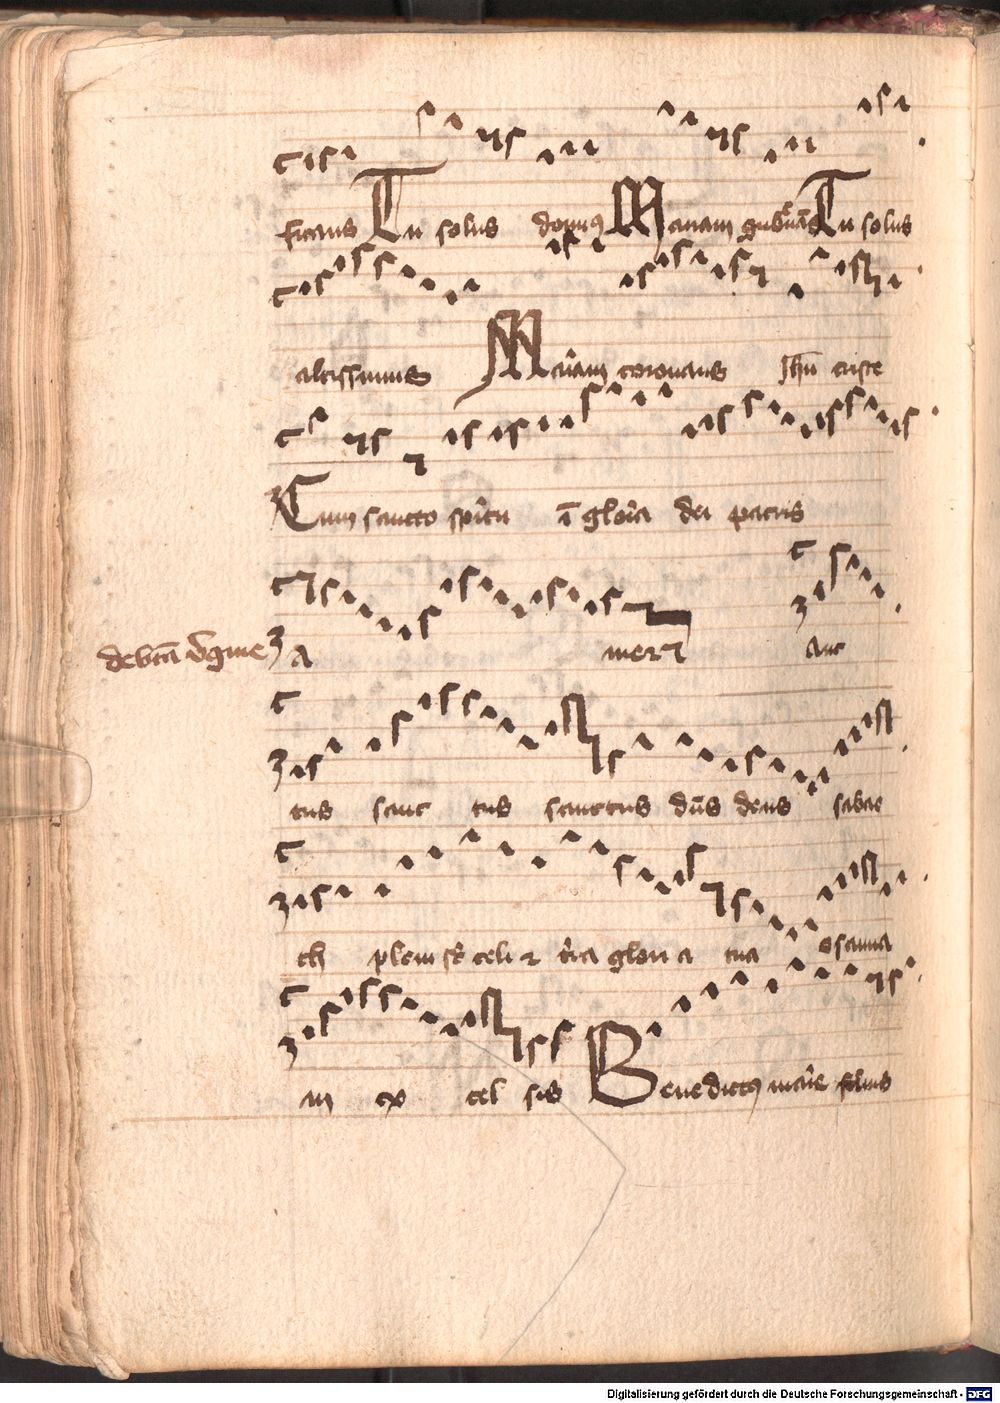 ficans Tu solus domin9 Mariam gub̄nās Tu solus
altissimus Mariam coronans Jhū criste
Cum sancto spiritu ī gloria dei patris
A men
de btā v̄gine
Sanc
tus sanc tus sanctus dn̄s deus sabao
th pleni st̄ celi et t̄ra gloria tua osanna
in ex cel sis Benedict9 marie filius
Digitalisierung gefördert durch die Deutsche Forschungsgemeinschaft - DFG